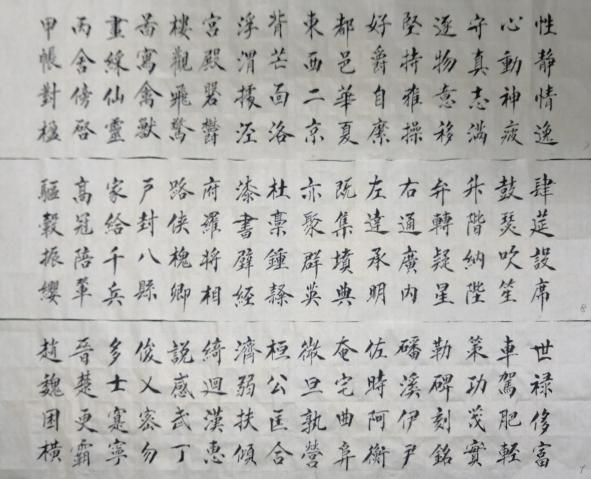 性靜情逸
心動神疲
守真志滿
逐物意移
堅持雅操
好爵自縻
都邑華夏
東西二京
背芒面洛
浮渭據涇
宮殿磐鬱
樓觀飛驚
圖寫禽獸
畫綵仙靈
丙舍傍啓
甲帳對楹
肆筵設席
鼓瑟吹笙
升階納陛
弁轉疑星
右通廣內
左達承明
既集墳典
亦聚群英
杜稾鍾隸
漆書壁経
府羅將相
路俠槐卿
戶封八縣
家給千兵
高冠陪輦
驅轂振纓
世禄侈富
車駕肥輕
策功茂實
勒碑刻銘
磻溪伊尹
佐時阿衡
奄宅曲阜
微旦孰營
桓公匡合
濟弱扶傾
綺迴漢惠
說感武丁
俊乂密勿
多士寔寧
晉楚更霸
趙魏困橫